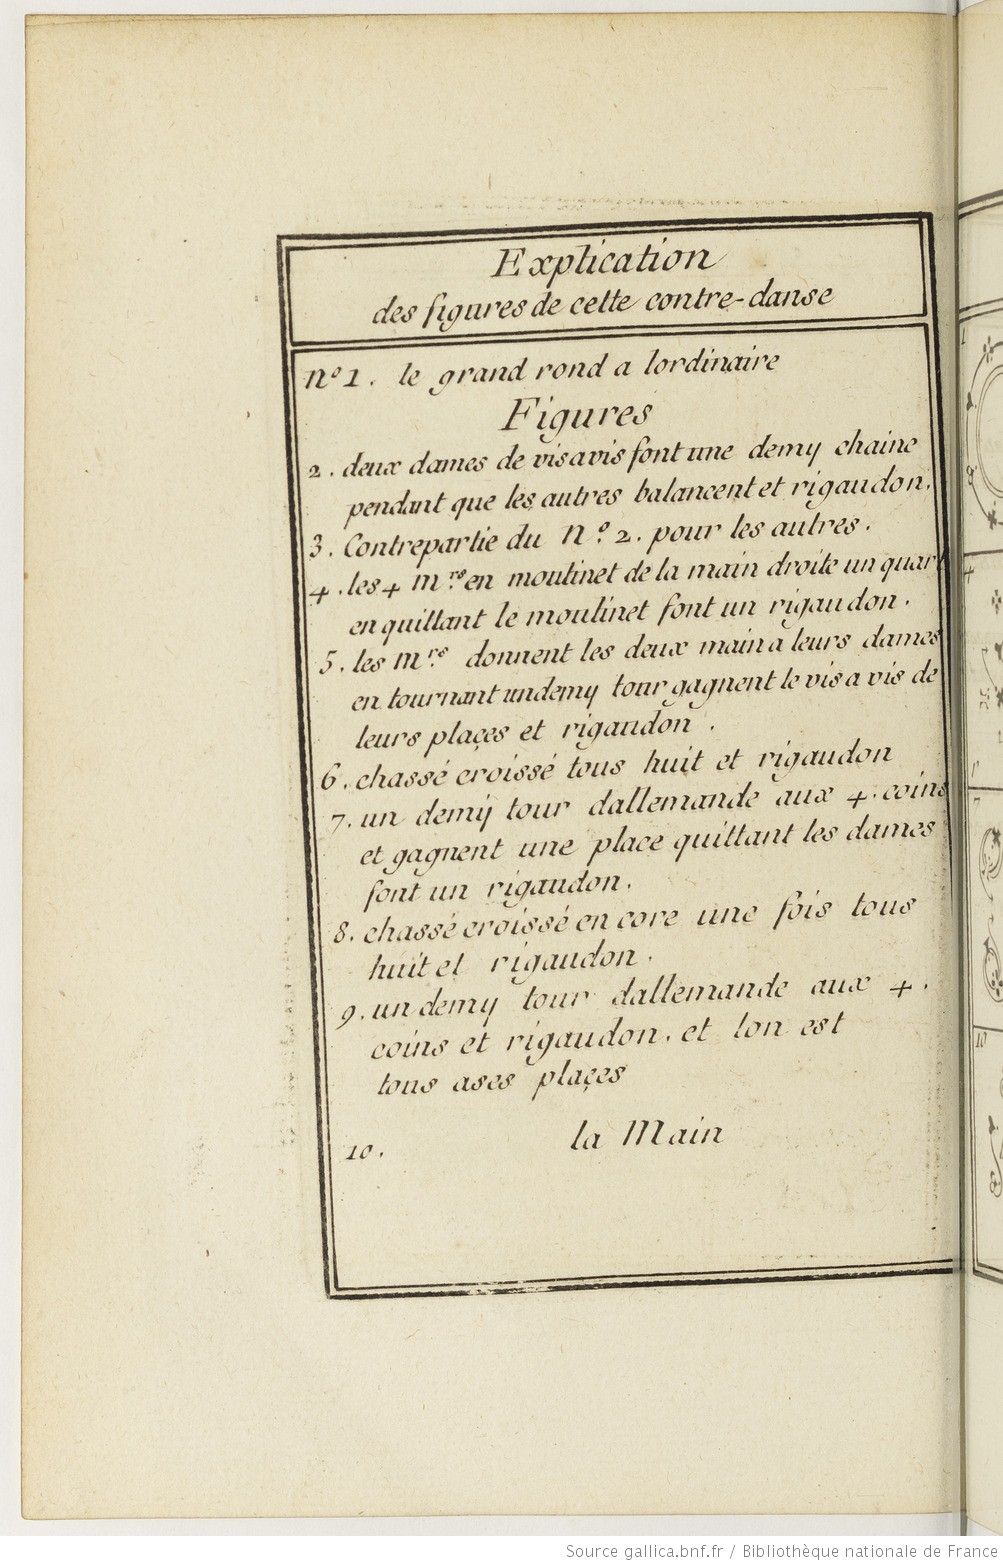 Explication
des figures de cette contre-danse
Nº 1. le grand rond a lordinaire
Figures
2. deux dames de visavis font une demy chaine
pendant que les autres balancent et rigaudon.
3. Contrepartie du Nº. 2. pour les autres.
4. les 4 mrs. en moulinet de la main droite un quart
en quittant le moulinet font un rigaudon.
5. les mrs. donnent les deux main a leurs dames
en tournant undemy tour gagnent le vis a vis de
leurs plaçes et rigaudon.
6. chassé croissé tous huit et rigaudon
7. un demy tour dallemande aux 4. coins
et gagnent une place quittant les dames
font un rigaudon.
8. chassé croissé en core une fois tous
huit et rigaudon.
9. un demy tour dallemande aux 4.
coins et rigaudon. et lon est
tous ases plaçes
10. la Main
Source gallica.bnf.fr / Bibliothèque nationale de France